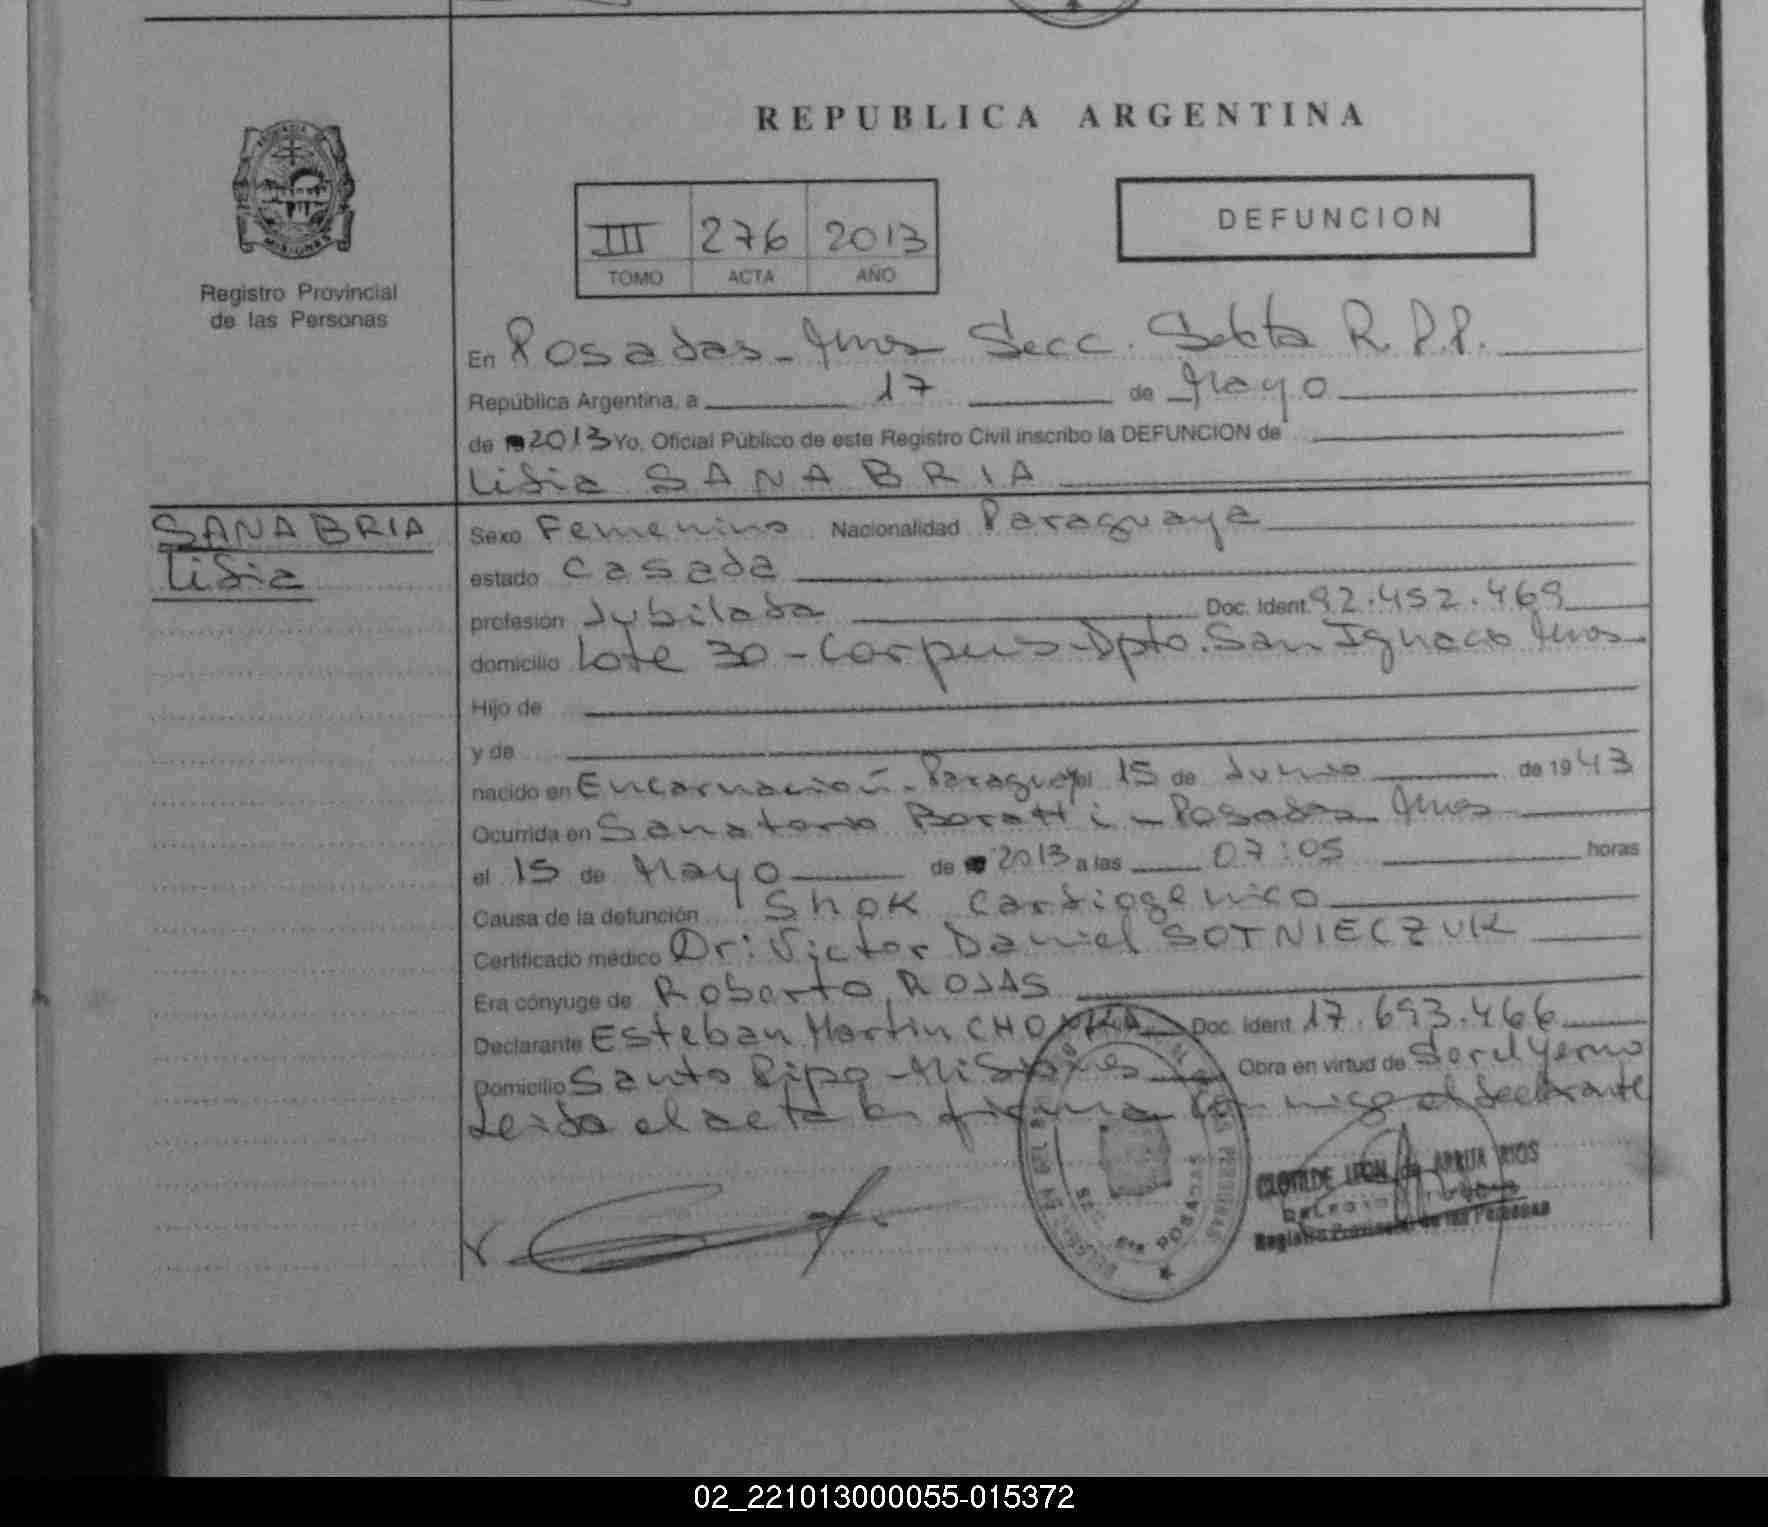 REPUBLICA ARGENTINA
MISIONES
Registro Provincial
de las Personas
III 276 2013
TOMO ACTA AÑO
DEFUNCION
En Posadas - Mnes Secc. Sexta R.P.P.
República Argentina, a 17 de Mayo
de 2013 Yo, Oficial Público de este Registro Civil inscribo la DEFUNCION de
Lidia SANABRIA
SANABRIA
Lidia
Sexo Femenino Nacionalidad Paraguaya
estado Casada
profesión Jubilada Doc. Ident. 92.452.469
domicilio Lote 30 - Corpus - Dpto. San Ignacio Mnes
Hijo de
y de
nacido en Encarnación - Paraguay el 15 de Junio de 1943
Ocurrida en Sanatorio Boratti - Posadas Mnes
el 15 de Mayo de 2013 a las 07:05 horas
Causa de la defunción Shok Cardiogenico
Certificado médico Dr: Victor Daniel SOTNIECZUK
Era cónyuge de Roberto ROJAS
Declarante Esteban Martin Doc. Ident. 17.693.466
Domicilio Santo Pipo - Misiones Obra en virtud de Ser el yerno
Leida el acta la firma conmigo el declarante
6ta POSADAS
CLOTILDE LEON de ARRUA RIOS
Registro Provincial de las Personas
02_221013000055-015372